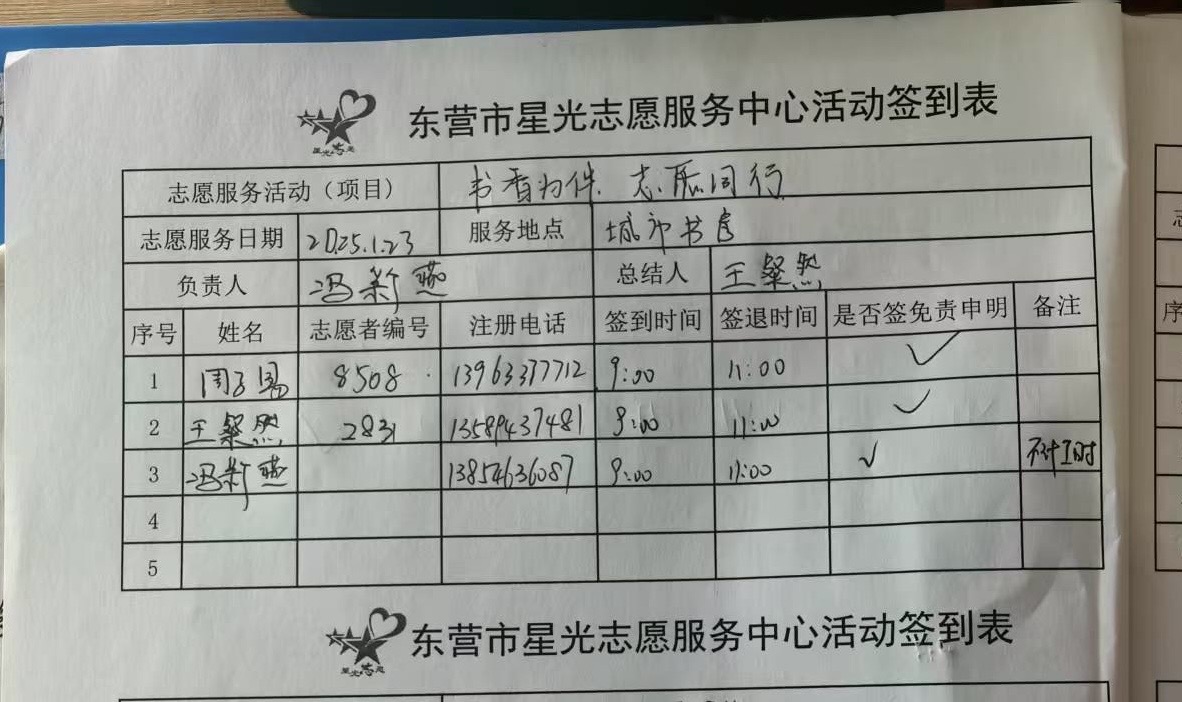 星光志愿
东营市星光志愿服务中心活动签到表
志愿服务活动（项目） 书香为伴 志愿同行
志愿服务日期 2025.1.23 服务地点 城市书房
负责人 冯新燕 总结人 王粲然
序号 姓名 志愿者编号 注册电话 签到时间 签退时间 是否签免责申明 备注
1 周子易 8508 13963377712 9:00 11:00 ✓
2 王粲然 2831 13589437481 9:00 11:00 ✓
3 冯新燕 13854636087 9:00 11:00 ✓ 不计工时
4
5
星光志愿
东营市星光志愿服务中心活动签到表